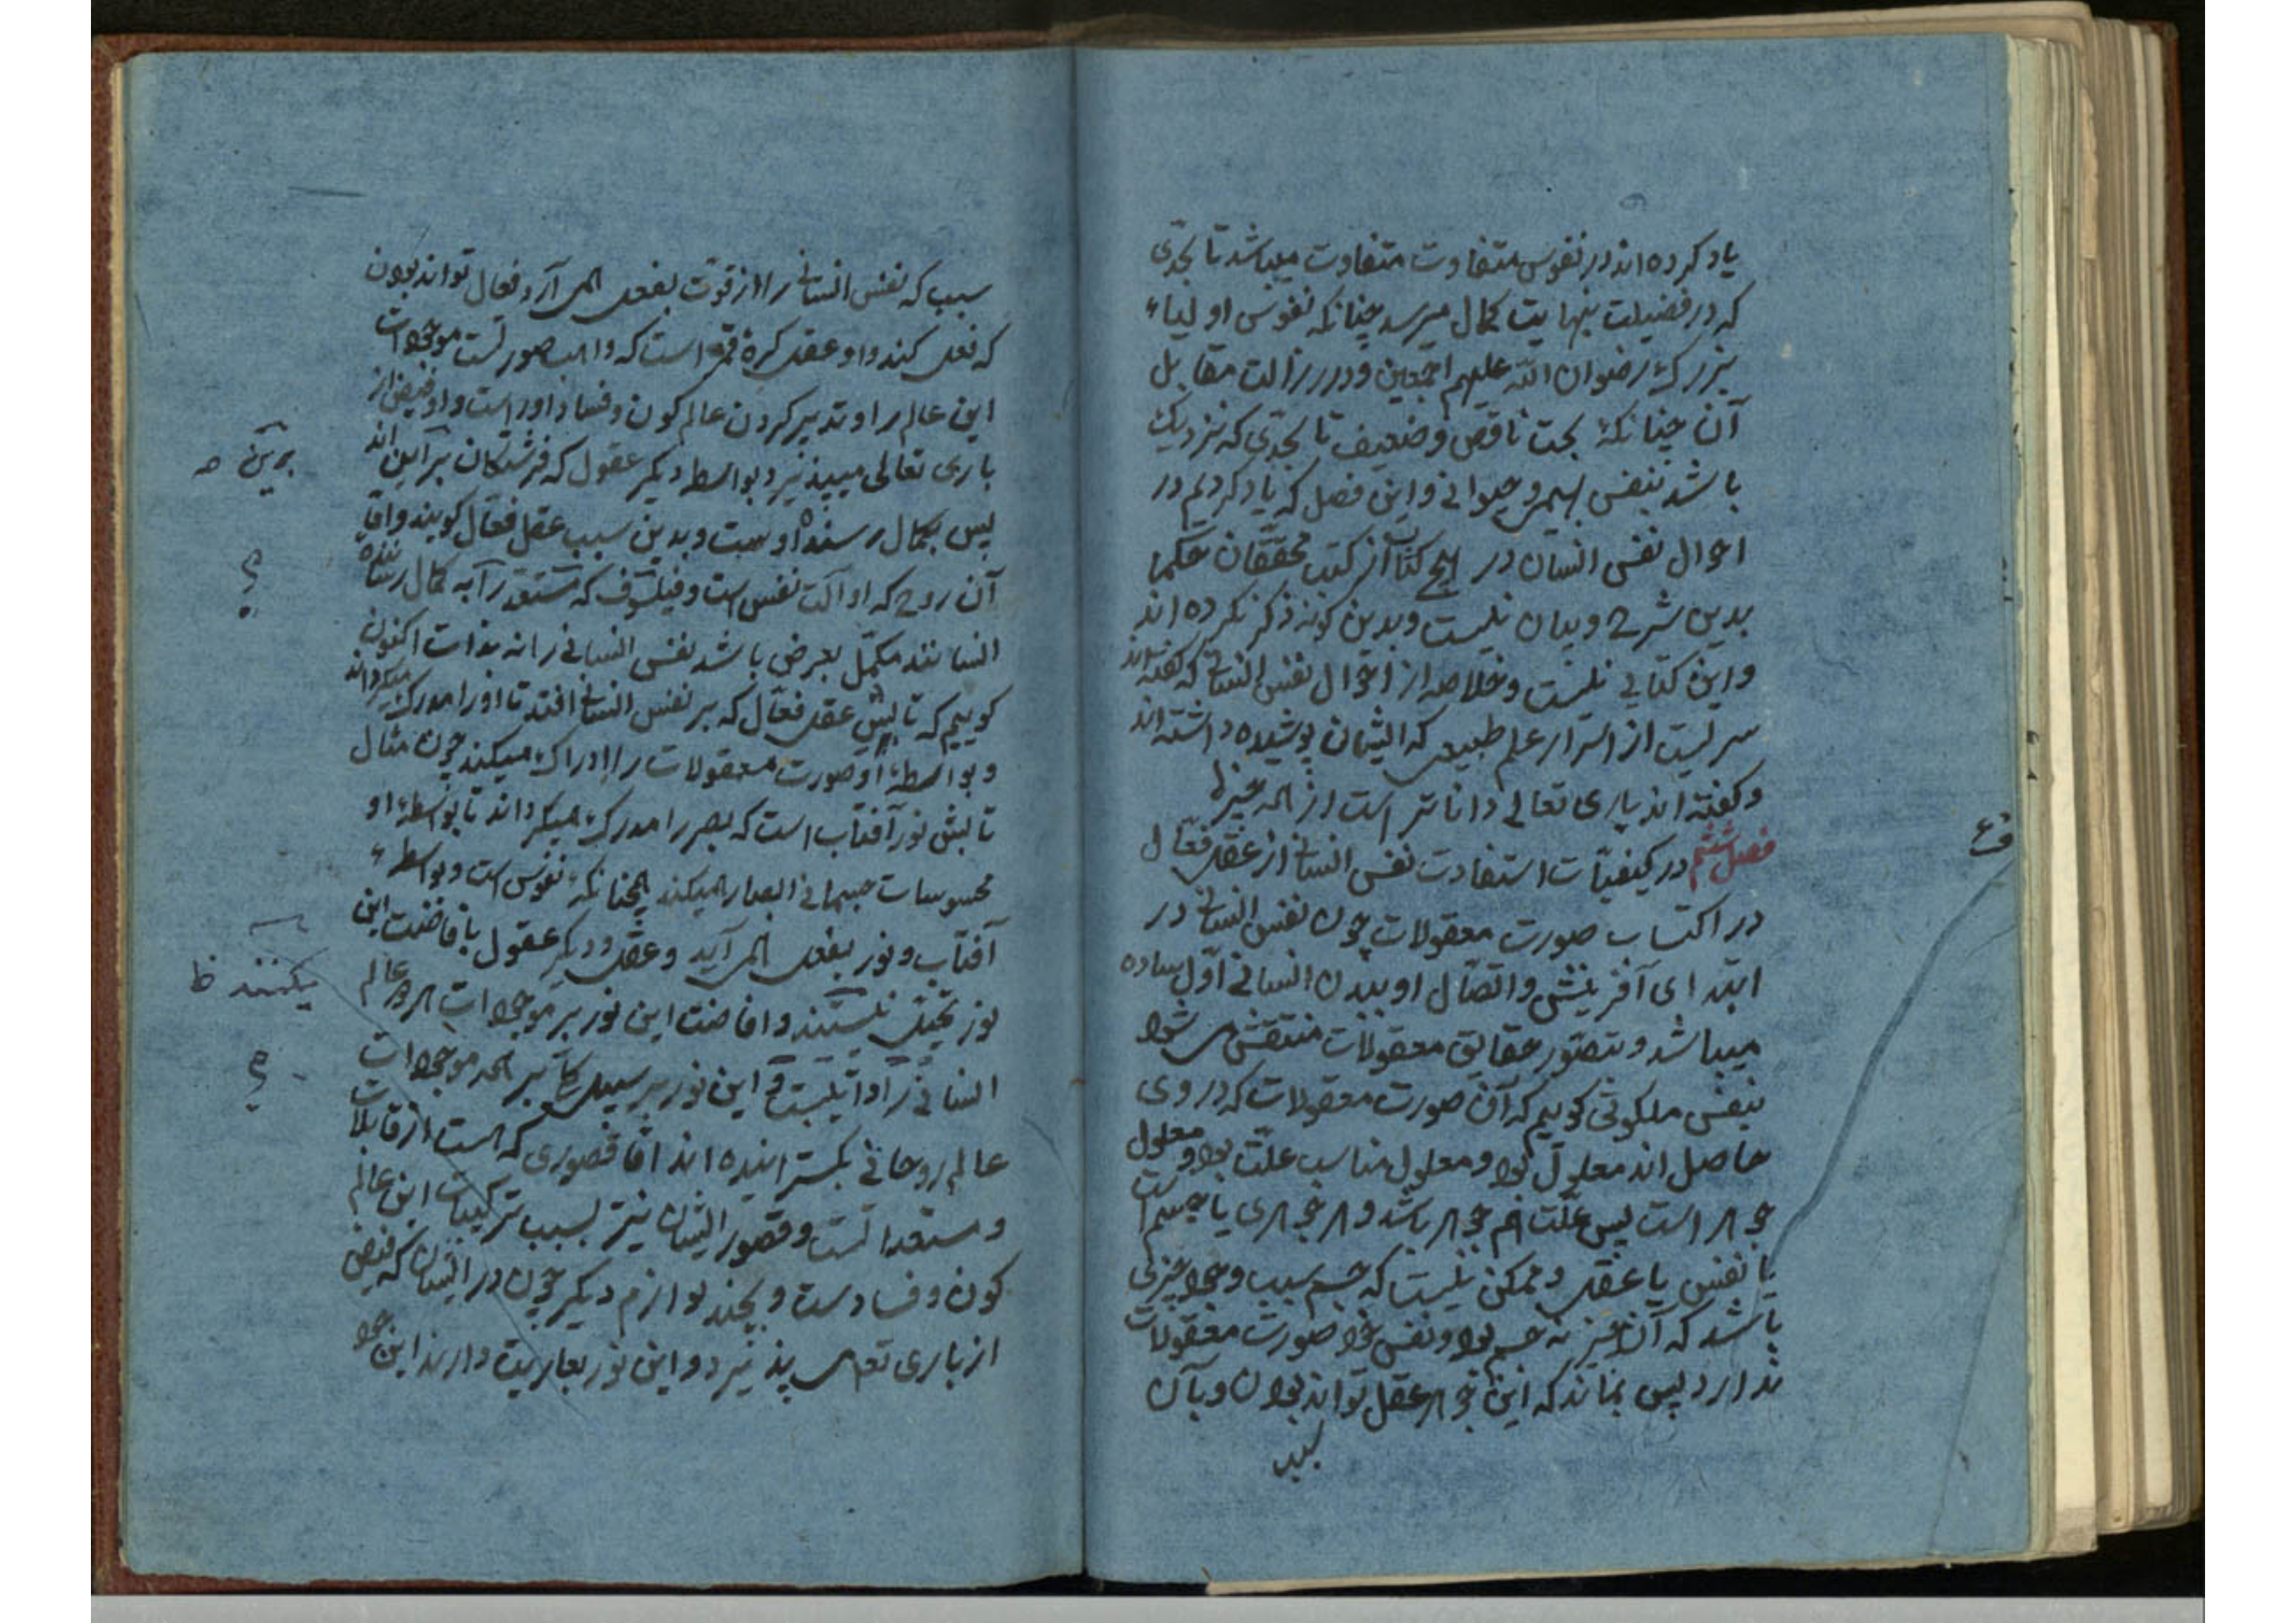 یاد کرده اند در نفوس متفاوت متفاوت میباشد تا بحدی
که در فضیلت بنهایت کمال میرسد چنانکه نفوس اولیاء
بزرک رضوان الله علیهم اجمعین و در رزالت مقابل
آن چنانکه بحت ناقص و ضعیف تا بحدی که نزدیک
باشد بنفس بهیمی و حیوانی و این فصل که یاد کردیم در
احوال نفس انسان در هیچ کتاب از کتب محققان حکما
بدین شرح و بیان نیست و بدین کونه ذکر نکرده اند
و این کتابی نیست و خلاصه از احوال نفس انسانی که کفته اند
سریست از اسرار علم طبیعی که ایشان پوشیده داشته اند
و کفته اند باری تعالی داناتر است از همه چیزها
فصل ششم در کیفیات استفادت نفس انسانی از عقل فعال
در اکتساب صورت معقولات چون نفس انسانی در
ابتدای آفرینش و اتصال او ببدن انسانی اول ساده
میباشد و بتصور حقایق معقولات منتقش می شود
بنفس ملکوتی کوییم که آن صورت معقولات که در وی
حاصل اند معلول بود و معلول مناسب علت بود و معلول
جوهر است پس علت هم جوهر باشد و هر جوهری یا جسم است
یا نفس یا عقل و ممکن نیست که جسم سبب وجود چیزی
باشد که آن چیز نه جسم بود و نفس خود صورت معقولات
ندارد پس بماند که این جوهر عقل تواند بودن و بآن
سبب
فع
سبب که نفس انسانی را از قوت بفعل همی آرد فعال تواند بودن
که فعل کند و او عقل کره قمر است که واهب صورتست موجودات
این عالم را و تدبیر کردن عالم کون و فساد او راست و او فیض از
باری تعالی میپذیرد بواسطه دیکر عقول که فرشتکان براین اند
پس بکمال رسنده اوست و بدین سبب عقل فعال کویند و اما
آن روح که او آلت نفس است و فیلسوف که مستعد را به کمال رساننده
انسانند مکمل بعرض باشد نفس انسانی را نه بذات اکنون
کوییم که تابش عقل فعال که بر نفس انسانی افتد تا او را مدرک میکرداند
و بواسطه او صورت معقولات را ادراک میکند چون مثال
تابش نور آفتاب است که بصر را مدرک میکرداند تا بواسطه او
محسوسات جسمانی ابصار میکند همچنانکه نفوس است و بواسطه
آفتاب و نور بفعل همی آید و عقل و دیکر عقول بافاضت این
نور بخیل نیستند و افاضت این نور بر موجودات هر دو عالم
انسانی را این نور بر سبیل بر همه موجودات
عالم روحانی بکسترانیده اند اما قصوری که هست از قابلات
و مستعدانست و قصور ایشان نیز بسبب ترکیبات این عالم
کون و فسادست و بچند لوازم دیکر چون در ایشان که فیض
از باری تعالی پذیرد و این نور بعاریت دارند این خود
برین
؟
یکنند ظ
؟